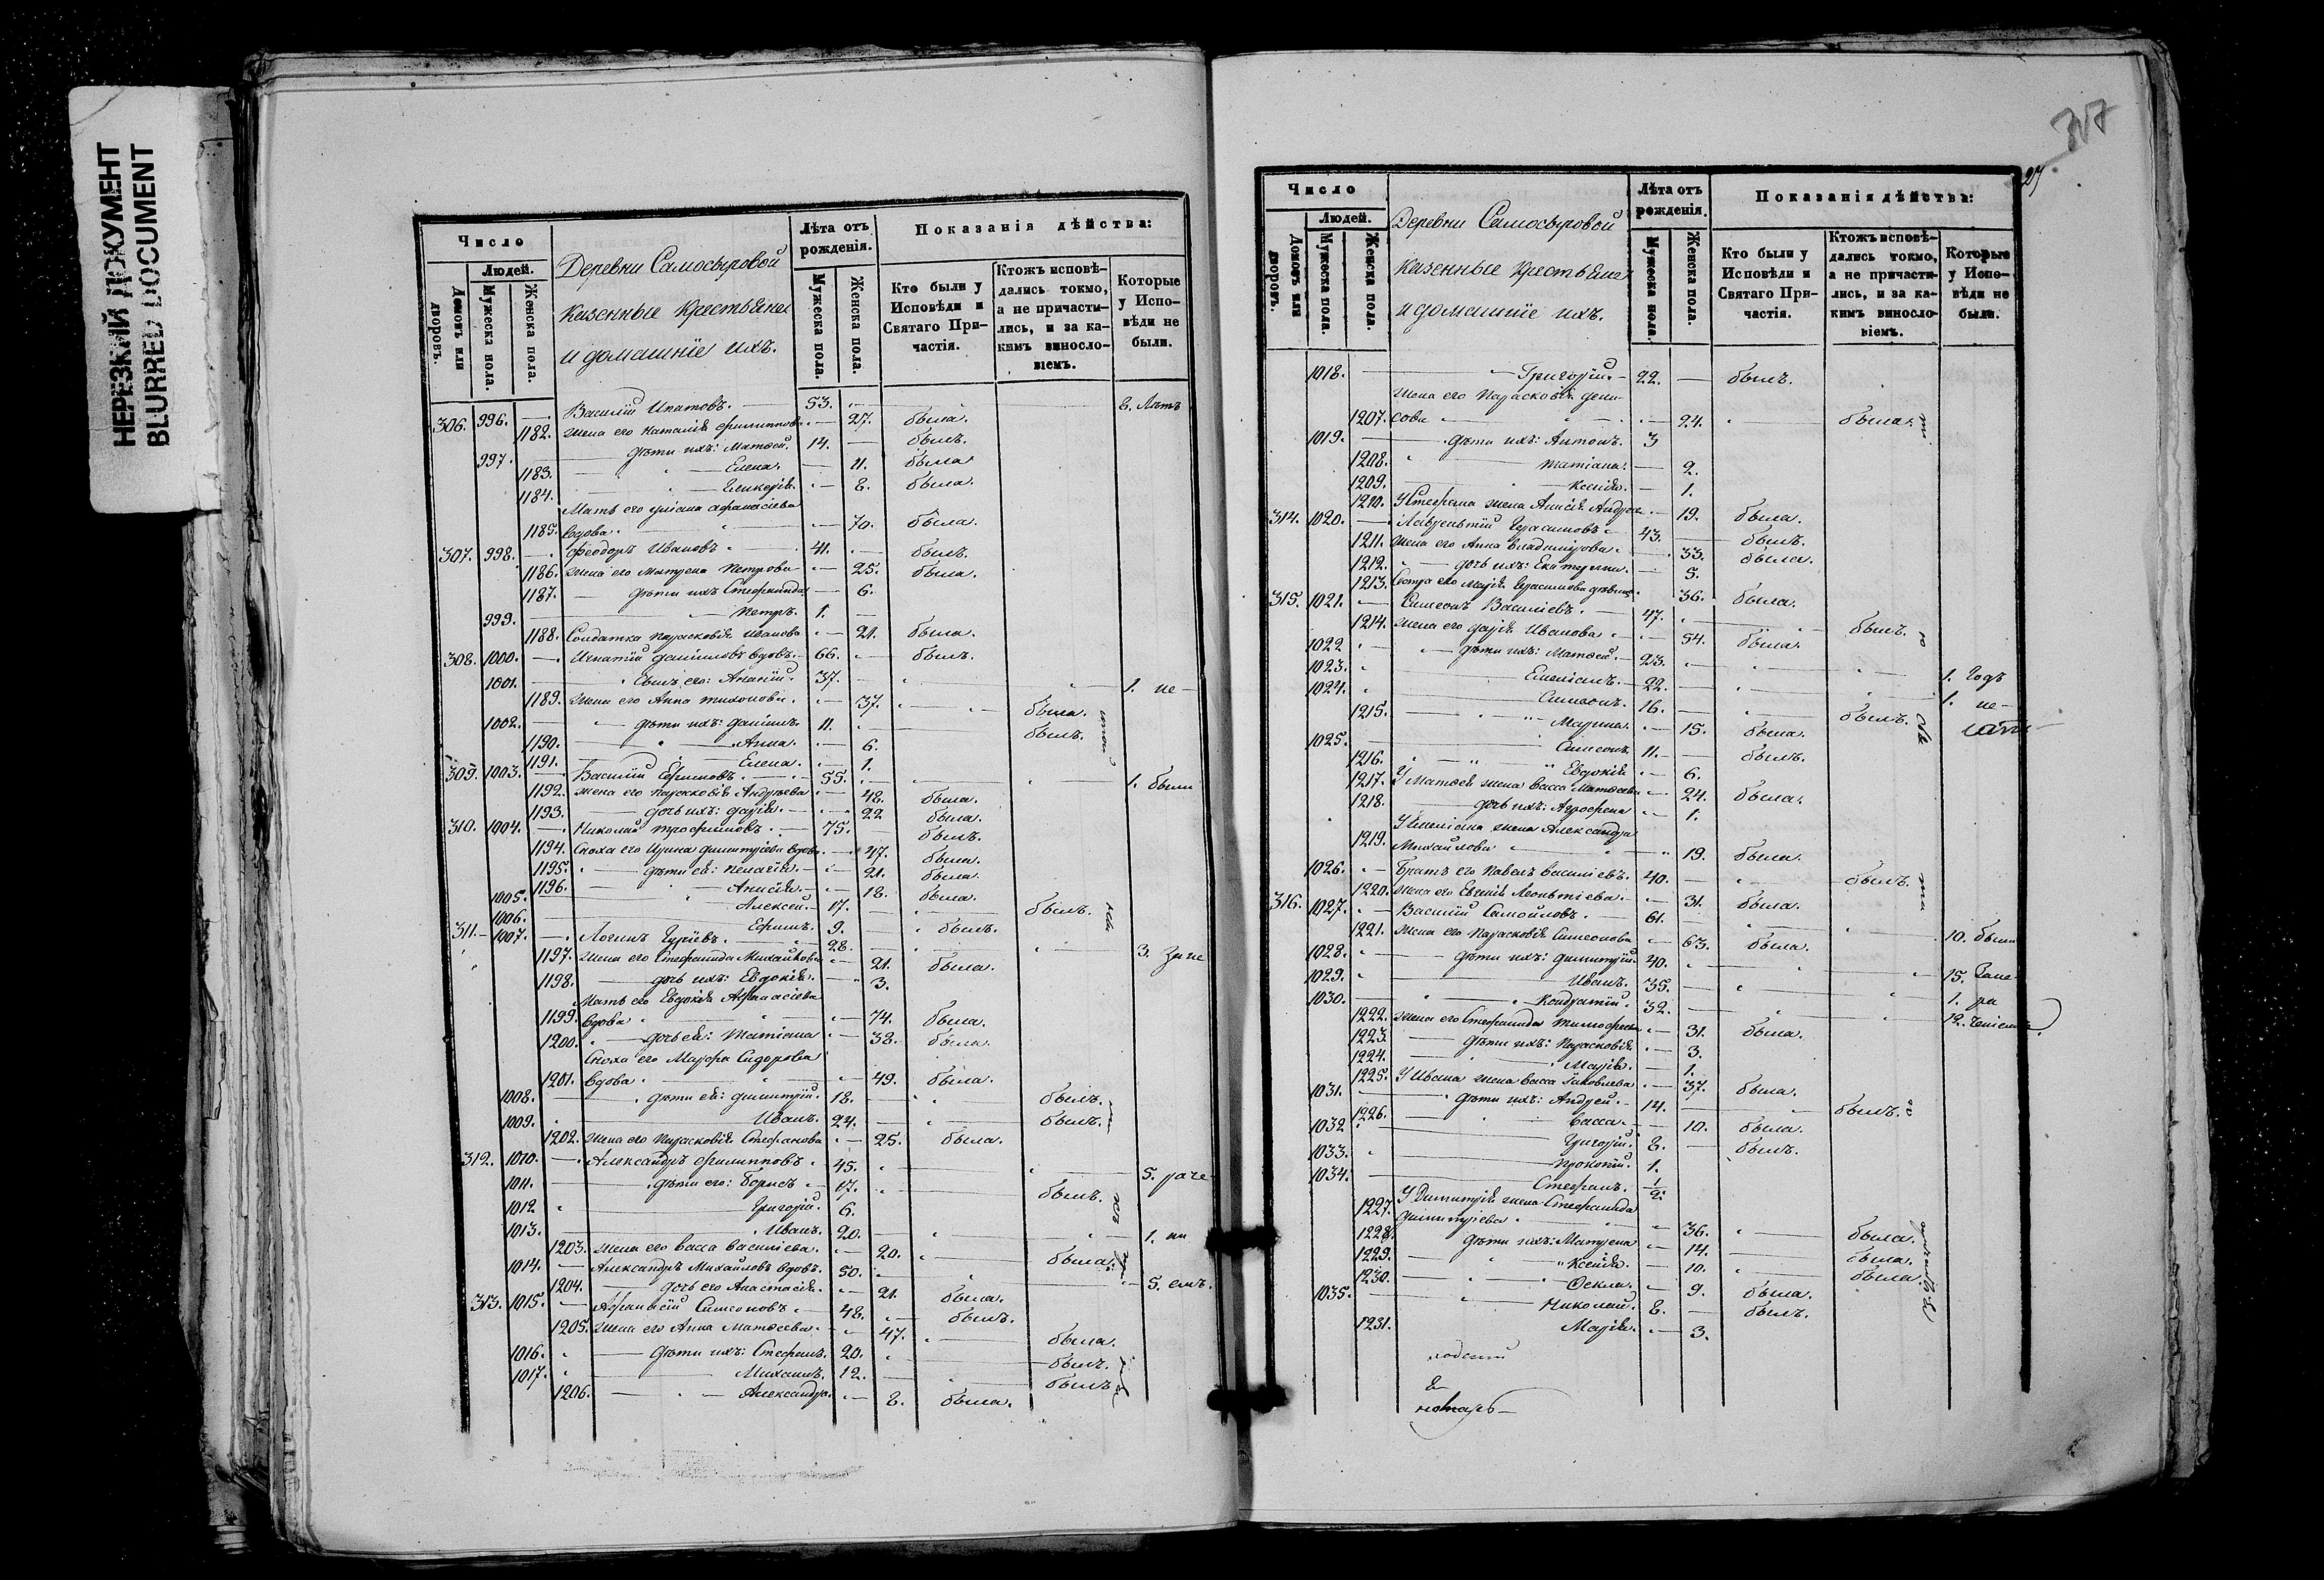 НЕРЕЗКИЙ ДОКУМЕНТ
BLURRED DOCUMENT
Число
Людей.
Домовъ или дворовъ.
Мужеска пола.
Женска пола.
Деревни Самосыровой
казенные крестьяне
и домашніе ихъ.
Лѣта отъ рожденія.
Мужеска пола.
Женска пола.
Показанія дѣйства:
Кто были у Исповѣди и Святаго Причастія.
Ктожъ исповѣдались токмо, а не причастились, и за какимъ винословіемъ.
Которые у Исповѣди не были.
306. 996. — Василій Ипатовъ. 53. — 8. Лѣтъ
1182. жена его Наталія Филиппова — 27. была.
997. дѣти ихъ: Матѳей. 14. — былъ.
1183. Елена. — 11. была.
1184. Гликерія. — 8. была.
Мать его Афанасіева
1185. вдова. — 70. была.
307. 998. — Феодоръ Ивановъ. 41. — былъ.
1186. жена его Матрена Петрова — 25. была.
1187. дѣти ихъ Стефанида — 6.
999. Петръ. 1. —
1188. Солдатка Парасковія Иванова — 21. была.
308. 1000. — Игнатій Даниловъ вдовъ. 66. — былъ.
1001. Сынъ его: Ананій. 37. — 1. не
1189. жена его Анна Тихонова. — 37. была.
1002. дѣти ихъ: Даніилъ. 11. былъ.
1190. Анна. — 6.
1191. Елена. — 1.
309. 1003. — Василій Ефимовъ. 55. 1. были
1192. жена его Парасковія Андреева — 48. была.
1193. дочь ихъ: Дарія. — 22 была.
310. 1004. — Николай Трофимовъ. 75. — былъ.
1194. Сноха его Ирина Димитріева вдова. — 47. была.
1195. дѣти ей: Пелагія. — 21. была.
1196. Анисія. — 18. была.
1005. Алексей. 17. былъ.
1006. Ефимъ. 9. былъ.
311. 1007. — Логинъ Гуріевъ. 28. 3.
1197. жена его Стефанида Михайлова — 21. была.
1198. дочь ихъ: Евдокія. — 3.
Мать его Евдокія Афанасіева
1199. вдова — 74. была.
1200. дочь ей: Татіана — 38. была.
Сноха его Марфа Сидорова
1201. вдова. — 49. была.
1008. дѣти ей: Димитрій. 18. былъ.
1009. Иванъ. 24. былъ.
1202. жена его Парасковія Стефанова — 25. была.
312. 1010. — Александръ Филипповъ. 45. 5.
1011. дѣти его: Борисъ 17. былъ.
1012 Григорій. 6.
1013. Иванъ. 20. 1.
1203. жена его Васса Василіева. — 20. была.
1014. — Александръ Михайловъ вдовъ. 50. 5.
1204. дочь его Анастасія. — 21. была.
313. 1015. — Афанасій Симеоновъ 48. былъ.
1205. жена его Анна Матѳеева. — 47. была.
1016. дѣти ихъ: Стефанъ. 20. былъ.
1017. Михаилъ. 12. былъ
1206. Александра. — 8. была.
317
27
Число
Людей.
Домовъ или дворовъ.
Мужеска пола.
Женска пола.
Деревни Самосыровой
казенные крестьяне
и домашніе ихъ.
Лѣта отъ рожденія.
Мужеска пола.
Женска пола.
Показанія дѣйства:
Кто были у Исповѣди и Святаго Причастія.
Ктожъ исповѣдались токмо, а не причастились, и за какимъ винословіемъ.
Которые у Исповѣди не были.
1018. Григорій. 22. — былъ.
жена его Парасковія Дени-
1207. сова 24. была.
1019. дѣти ихъ: Антонъ. 3
1208. Татіана. — 2.
1209. Ксенія. — 1.
1210. У Стефана жена Анисія — 19. была.
314. 1020. — Лаврентій Герасимовъ 43. былъ.
1211. жена его Анна Владимірова. — 33. была.
1212. дочь ихъ: Екатерина. — 5.
1213. Сестра его Марія Герасимова 36. была.
315. 1021. — Симеонъ Василіевъ. 47. былъ.
1214. жена его Дарія Иванова — 54. была.
1022 дѣти ихъ: Матѳей. 23. 1. Годъ
1023. Емеліанъ. 22. 1. не
1024. Симеонъ. 16. былъ.
1215. Марина. — 15. была.
1025. Симеонъ. 11. — былъ.
1216. Евдокія — 6.
1217. У Матѳея жена Васса Матѳеева — 24. была.
1218. дочь ихъ: Агрофена — 1.
У Емеліана жена Александра
1219. Михайлова 19. была.
1026. Братъ его Павелъ Василіевъ. 40. былъ.
1220. жена его Евгенія Леонтіева. — 31. была.
316. 1027. — Василій Самойловъ. 61. 10. были
1221. жена его Парасковія Симеонова — 63. была.
1028. дѣти ихъ: Димитрій. 40. 15.
1029. Иванъ. 35. 1.
1030. Кондратій. 32. 12.
1222. жена его Стефанида Тимофеева — 31. была.
1223. дѣти ихъ: Парасковія — 3.
1224. Марія. — 1.
1225. У Ивана жена Васса Іаковлева — 37. была.
1031. дѣти ихъ: Андрей. 14. былъ.
1226. Васса. — 10. была.
1032 Григорій. 8. — былъ.
1033. Прокопій. 1.
1034. Стефанъ. 1/2.
У Димитрія жена Стефанида
1227. Димитріева. 36. была.
1228. дѣти ихъ: Матрена — 14. была.
1229. Ксенія. — 10. была.
1230. Ѳекла. — 9. была.
1035. Николай. 8. — былъ.
1231. Марія. — 3.